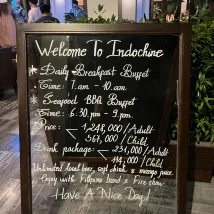 Welcome To Indochine
* Daily Breakfast Buffet
Time: 7.am - 10.am
* Seafood BBQ Buffet
Time: 6:30.pm - 9.pm.
Price: 1,248,000/Adult
567,000 / Child
Drink package: 251,000/Adult
114,000 / Child
Unlimited local beer, soft drink & mango juice
Enjoy with Filipino band & Fire show
Have A Nice Day!